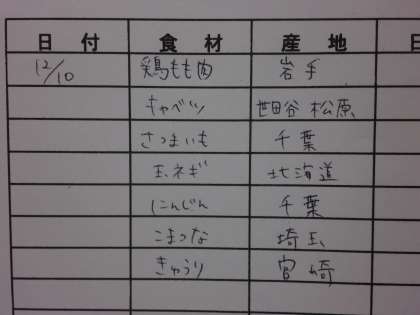 日付 食材 産地
12/10 鶏もも肉 岩手
キャベツ 世田谷 松原
さつまいも 千葉
玉ネギ 北海道
にんじん 千葉
こまつな 埼玉
きゅうり 宮崎